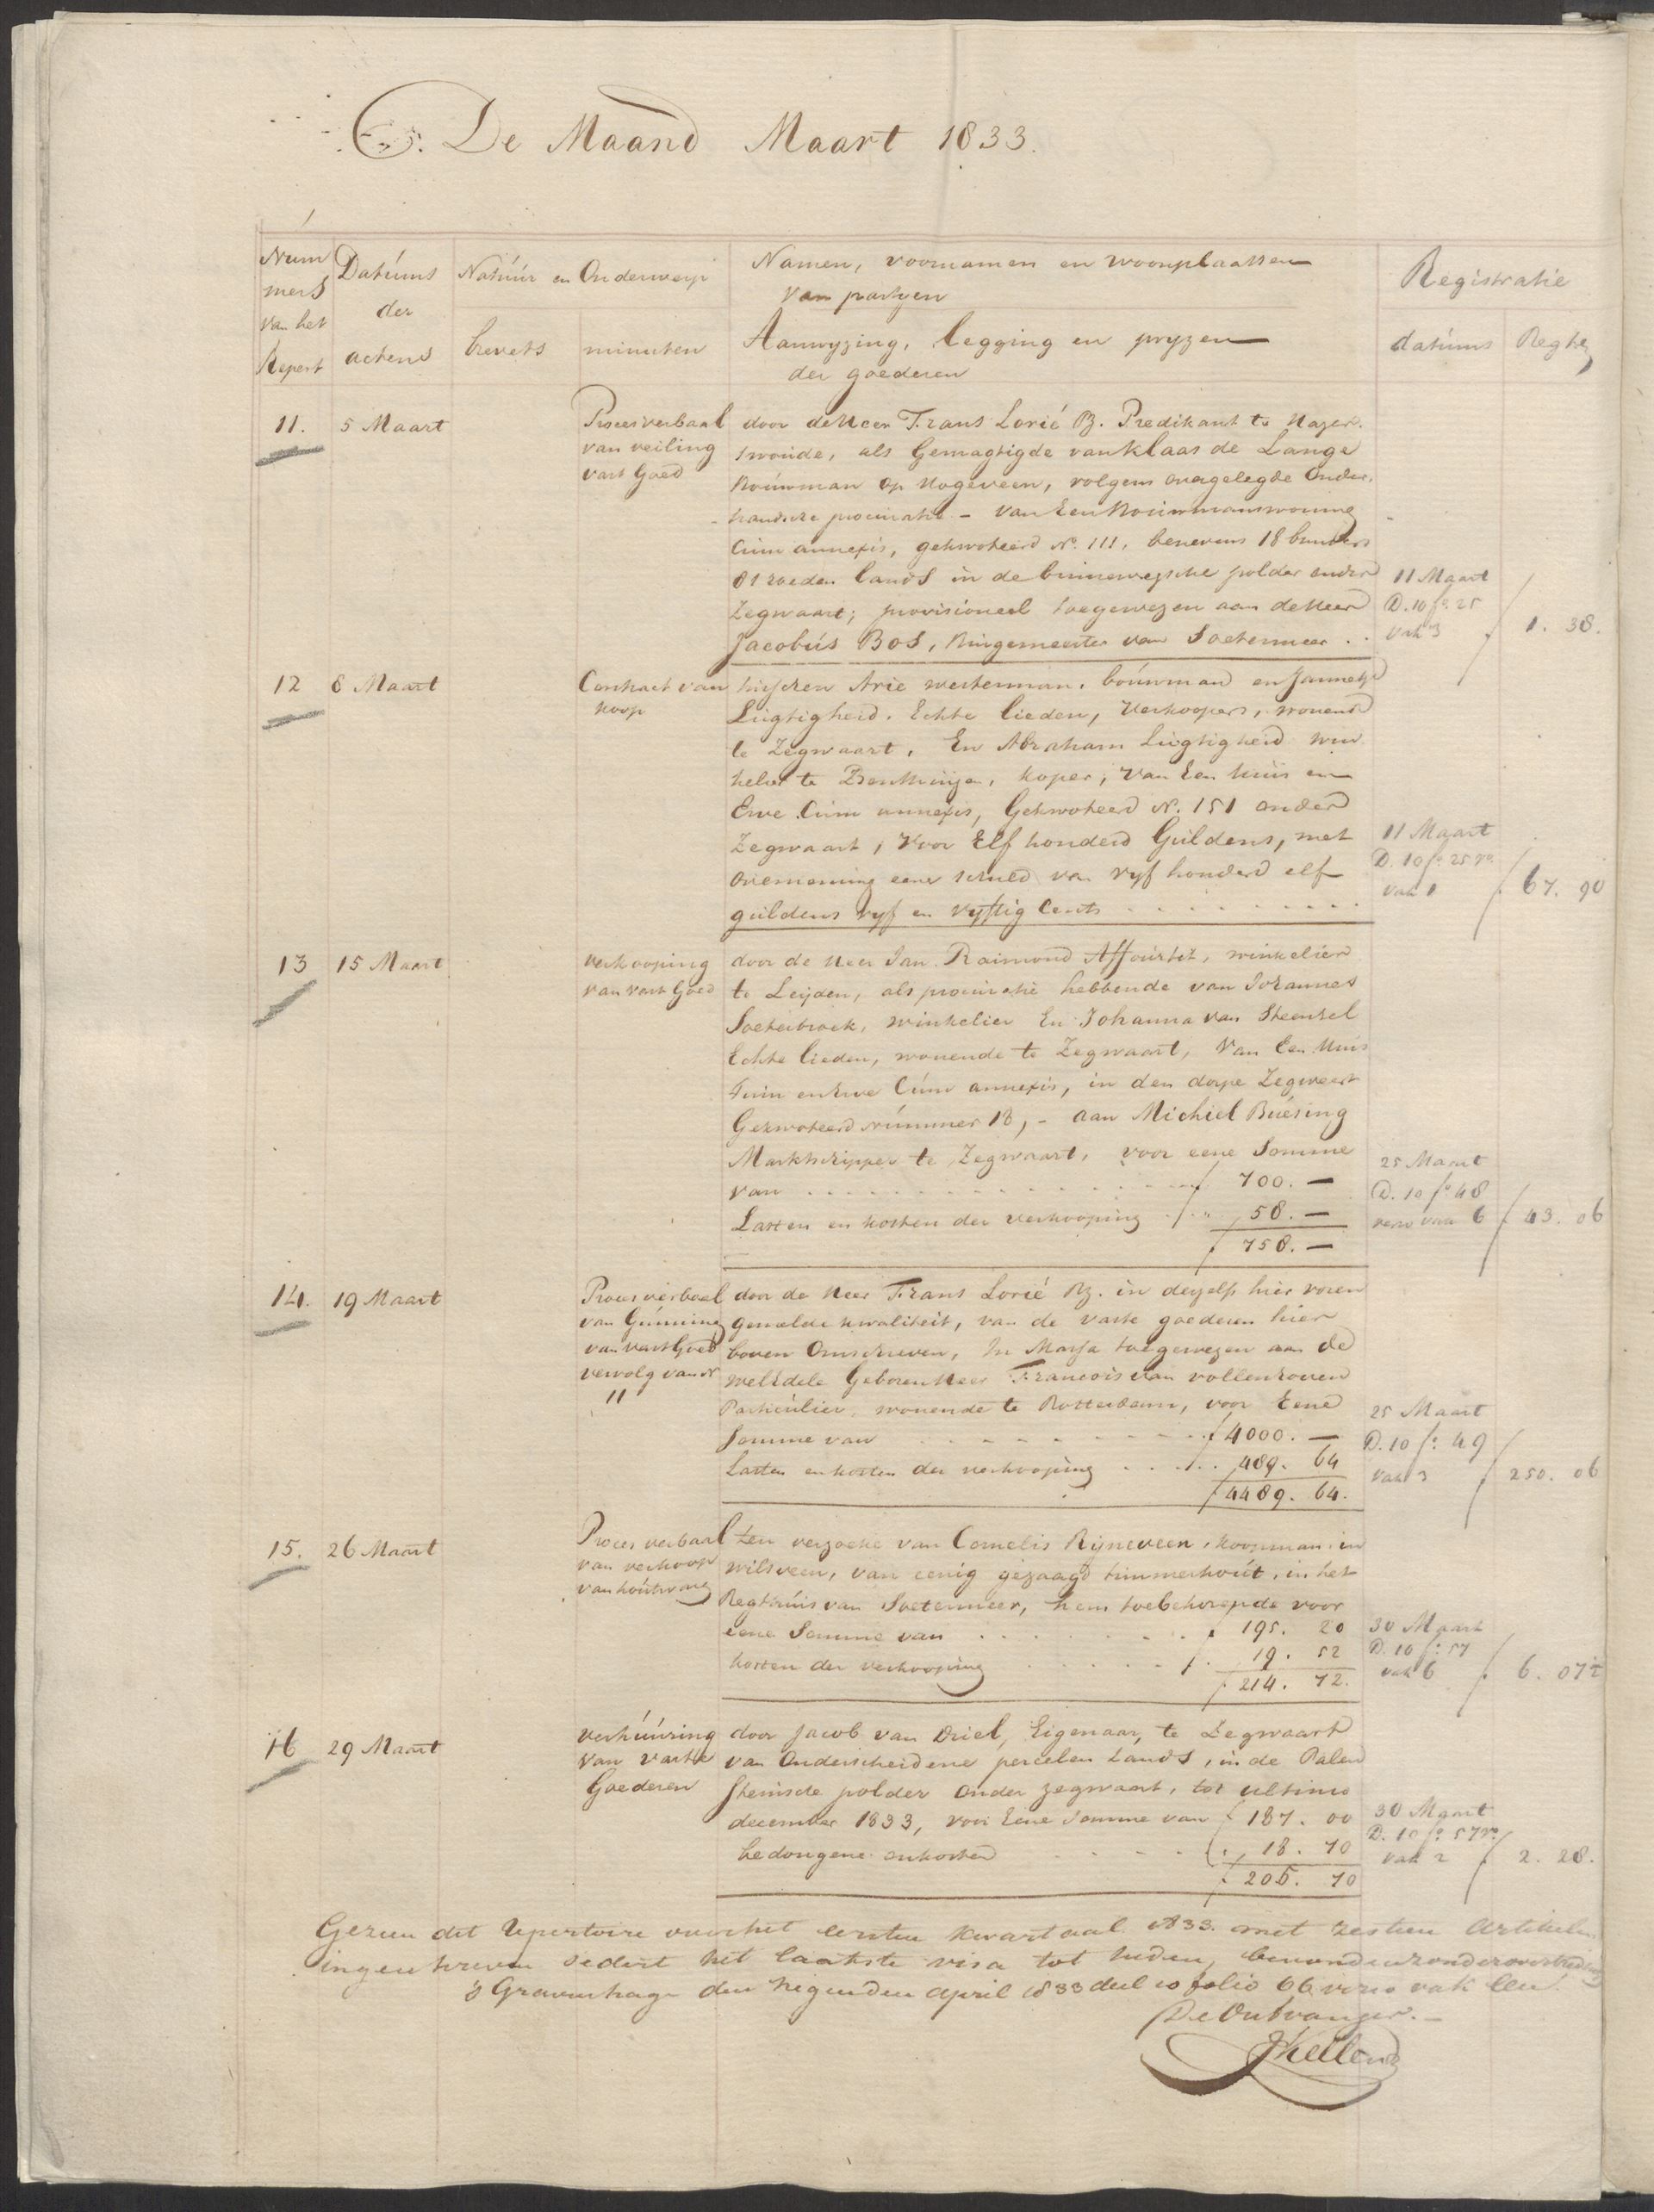 De Maand Maart 1833.
Num
mers
van het
Repert
Datums
der
actens
Natuur en Onderwerp
brevets
minuten
Namen, voornamen en woonplaatsen
van partyen
Aanwyzing, legging en pryzen
der goederen
Registratie
datums
Regten
11.
5 Maart
Procesverbaal
van veiling
vast Goed
door de Heer Frans Lorié Bz. Predikant te Hazers-
woude, als Gemagtigde van Klaas de Lange
Bouwman op Hogeveen, volgens overgelegde Onder-
handsche procuratie - van Een Bouwmanswoning
Cum annexis, gekwoteerd No. 111, benevens 18 bunders
81 roeden lands in de binnewegsche polder onder
Zegwaart; provisioneel toegewezen aan de Heer
Jacobus Bos, Burgemeester van Soetermeer . .
11 Maart
D. 10 fo. 25
vak 3
f 1. 38.
12
8 Maart
Contract van
koop
tusschen Arie westerman, bouwman en Jannetje
Lugtigheid. Echte lieden, Verkoopers, wonende
te Zegwaart, En Abraham Lugtigheid win
kelier te Benthuizen, koper, van Een huis en
Erve Cum annexis, Gekwoteerd N. 151 onder
Zegwaart, voor Elf honderd Guldens, met
overneming eener schuld van vyf honderd elf
guldens vyf en vyftig Cents
11 Maart
D. 10 fo. 25 vo
vak 1
f 67. 90
13
15 Maart
verkooping
van vast Goed
door de Heer Jan Raimond Affourtit, winkelier
te Leyden, als procuratie hebbende van Johannes
Soeterbroek, winkelier En Johanna van Steensel
Echte lieden, wonende te Zegwaart, Van Een Huis
Tuin en Erve Cum annexis, in den dorpe Zegwaart
Gekwoteerd Nummer 18, - aan Michiel Buesing
Marktschipper te Zegwaart, voor eene Somme
van f 700. —
Lasten en kosten der verkooping f 58. —
f 758. —
25 Maart
D. 10 fo 48
verso vak 6
f 43. 06
14.
19 Maart
Procesverbaal
van Gunning
van vast Goed
vervolg van N
11
door de Heer Frans Lorié Bz. in dezelfs hier voren
gemelde kwaliteit, van de vaste goederen hier
boven Omschreven, In Massa toegewezen aan de
WelEdele Geboren Heer Francois van vollenhoven
Particulier, wonende te Rotterdam, voor Eene
Somme van f 4000. —
Lasten en kosten der verkooping . . . f . 489. 64
f 4489. 64.
25 Maart
D. 10 fo. 49
vak 3
f 250. 06
15.
26 Maart
Proces verbaal
van verkoop
van houtwaren
ten verzoeke van Cornelis Rijneveen, koopman in
wilsveen, van eenig gezaagd timmerhout, in het
Regthuis van Soetermeer, hem toebehorende voor
eene Somme van f 195. 20
kosten der verkooping f. 19. 52
f 214. 72.
30 Maart
D. 10 fo 57
vak 6
f 6. 07½
16
29 Maart
verhuuring
van vaste
Goederen
door Jacob van Driel, Eigenaar, te Zegwaart
van Onderscheidene perceelen Lands, in de Palen
steinsche polder onder zegwaart, tot ultimo
december 1833, voor Eene Somme van f 187. 00
bedongene onkosten f. 18. 70
f 205. 70
30 Maart
D. 10 fo 57 vo
vak 2
f 2. 28.
Gezien dit Repertoire over het eerste kwartaal 1833. met zestien artikelen
ingeschreven sedert het laatste visa tot heden, bevonden zonder overtreding
's Gravenhage den negenden april 1833 deel 10 folio 66 verso vak een.
De Ontvanger.